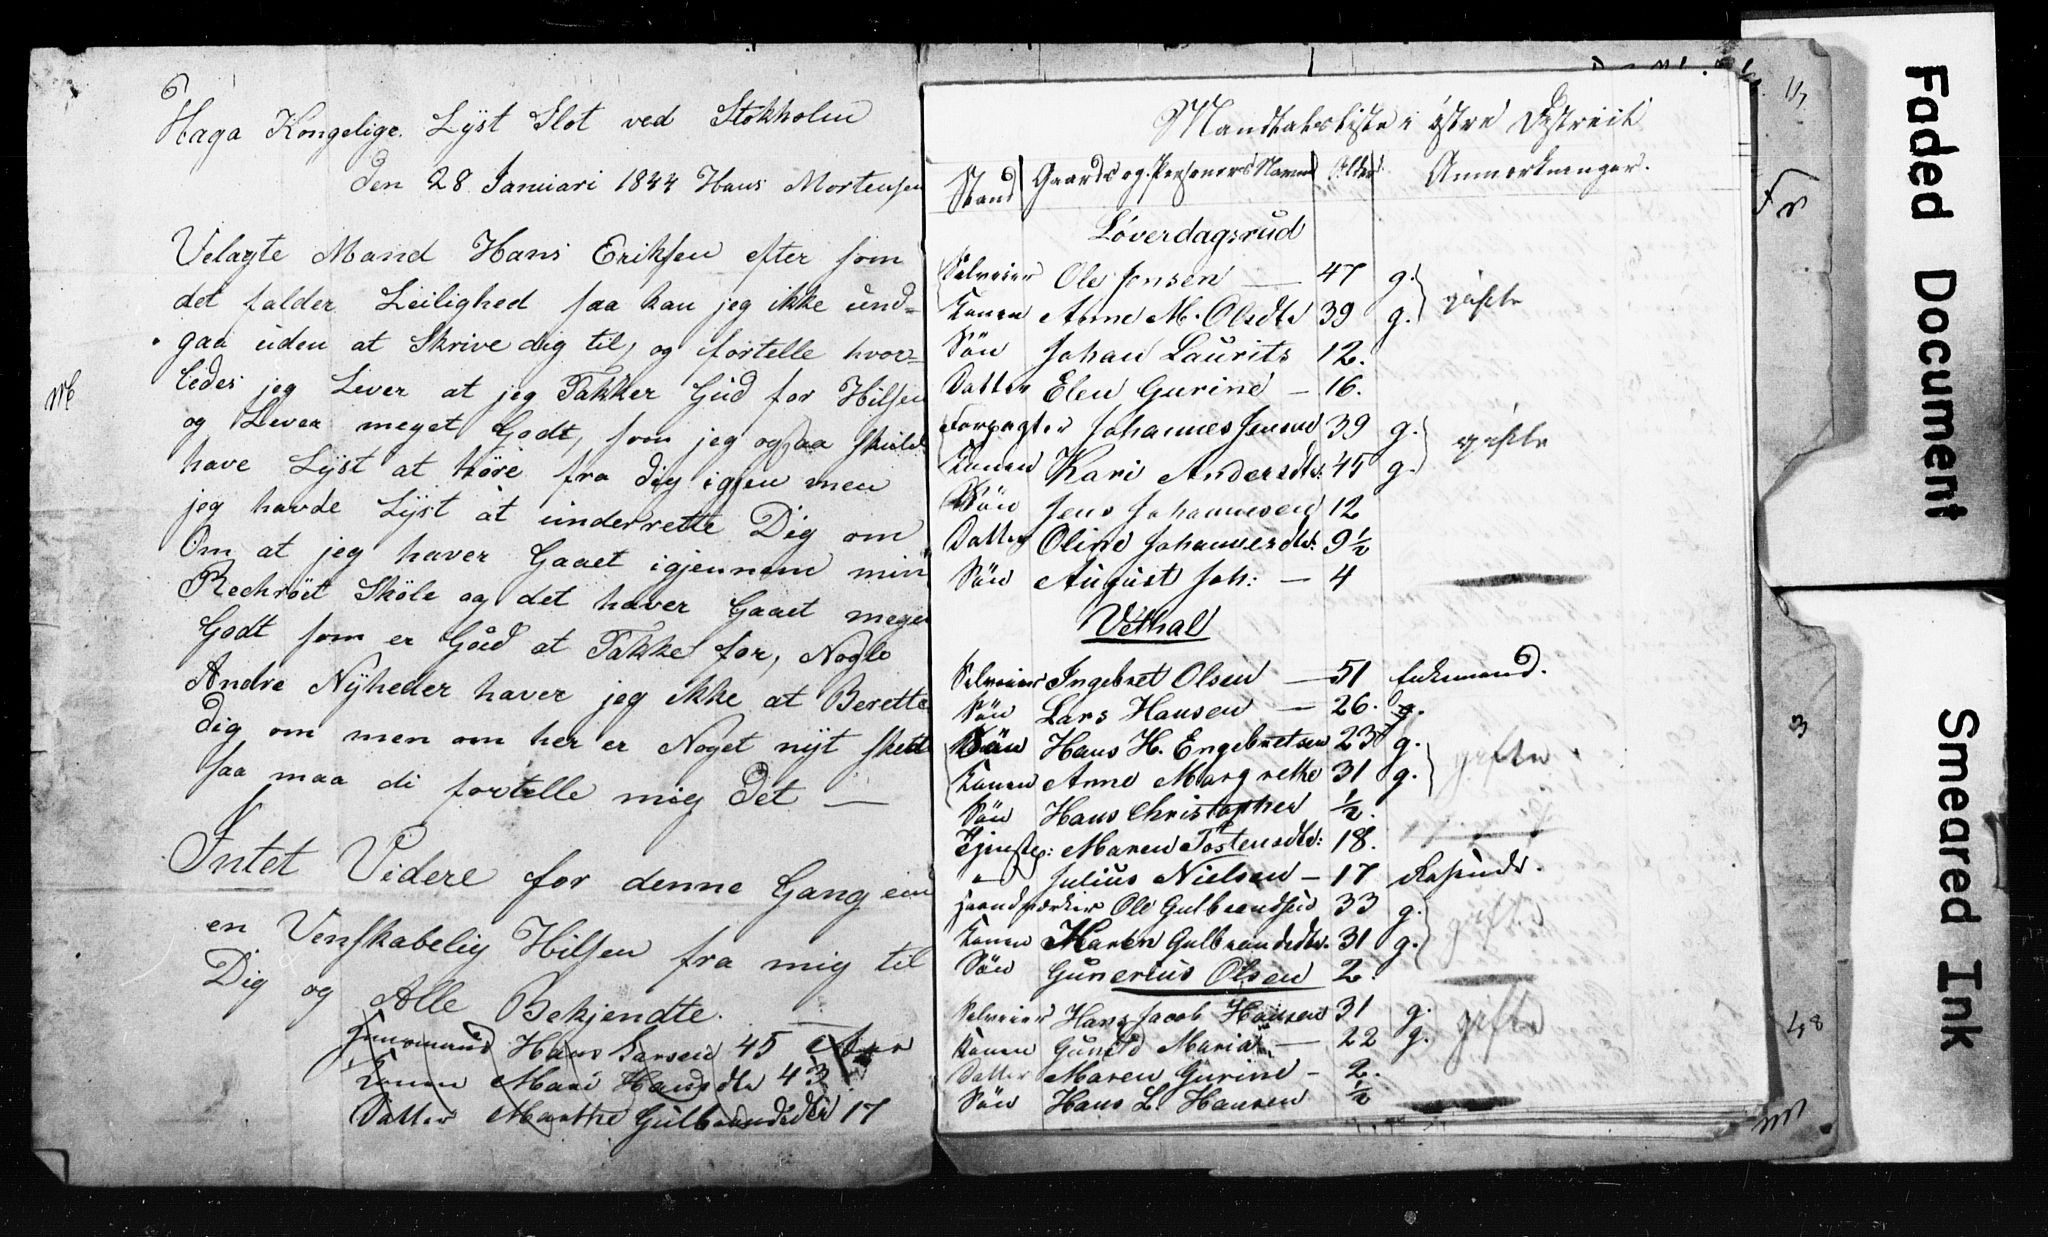 Haga Kongelige Lyst Slot ved Stokholm
den 28 Januari 1844 Hans Mortensen
Velagte Mand Hans Eriksen efter som
det falder Leilighed saa kan jeg ikke und=
gaa uden at Skrive dig til, og fortelle hvor=
ledes jeg Lever at jeg Takker Gud for Hilsen
og Lever meget Godt, som jeg ogsaa skulde
have Lyst at høre fra dig igjen men
jeg havde Lyst at underrette Dig om
Om at jeg haver Gaaet igjennem min
Rechröet Skole og det haver Gaaet meget
Godt som er Gud at Takke for, Nogle
Andre Nyheder haver jeg ikke at Berette
dig om men om her er Noget nyt skett
saa maa di fortelle mig Det —
Intet Videre for denne Gang end
en Venskabelig Hilsen fra mig til
Dig og Alle Bekjendte.
Huusmand Hans Larsen 45
Konen Mari Hansdtr 43
Datter Marthe Gulbrandsdtr 17
Mandtalsliste i östre Distreict
Stand Gaards og Personers Navne Alder Anmerkninger.
Löverdagsrud
Selveier Ole Jensen — 47 g. gifte
Konen Anne M. Olsdtr 39 g.
Sön Johan Laurits 12.
Datter Elen Gurine — 16.
Forpagter Johannes Jensen 39 g. gifte
Konen Kari Andersdtr. 45 g.
Sön Jens Johannesen 12
Datter Oline Johannesdtr. 9½
Sön August Joh: — 4
Vethal
Selveier Ingebret Olsen — 51 Enkemand.
Sön Lars Hansen — 26.
Sön Hans H. Engebretsen 23 g. gifte
Konen Anne Margrethe 31 g.
Sön Hans Christopher ½.
Tjenste: Maren Tostensdtr: 18.
— Julius Nielsen — 17
Haandværker Ole Gulbrandsen 33 g. gifte
Konen Maren Gulbrandsdtr. 31 g.
Sön Gunerius Olsen 2.
Selveier Hans Jacob Hansen 31 g. gifte
Konen Gunild Maria — 22 g.
Datter Maren Gurine — 2.
Sön Hans L. Hansen ½
Faded Document
Smeared Ink
Fr
3
48